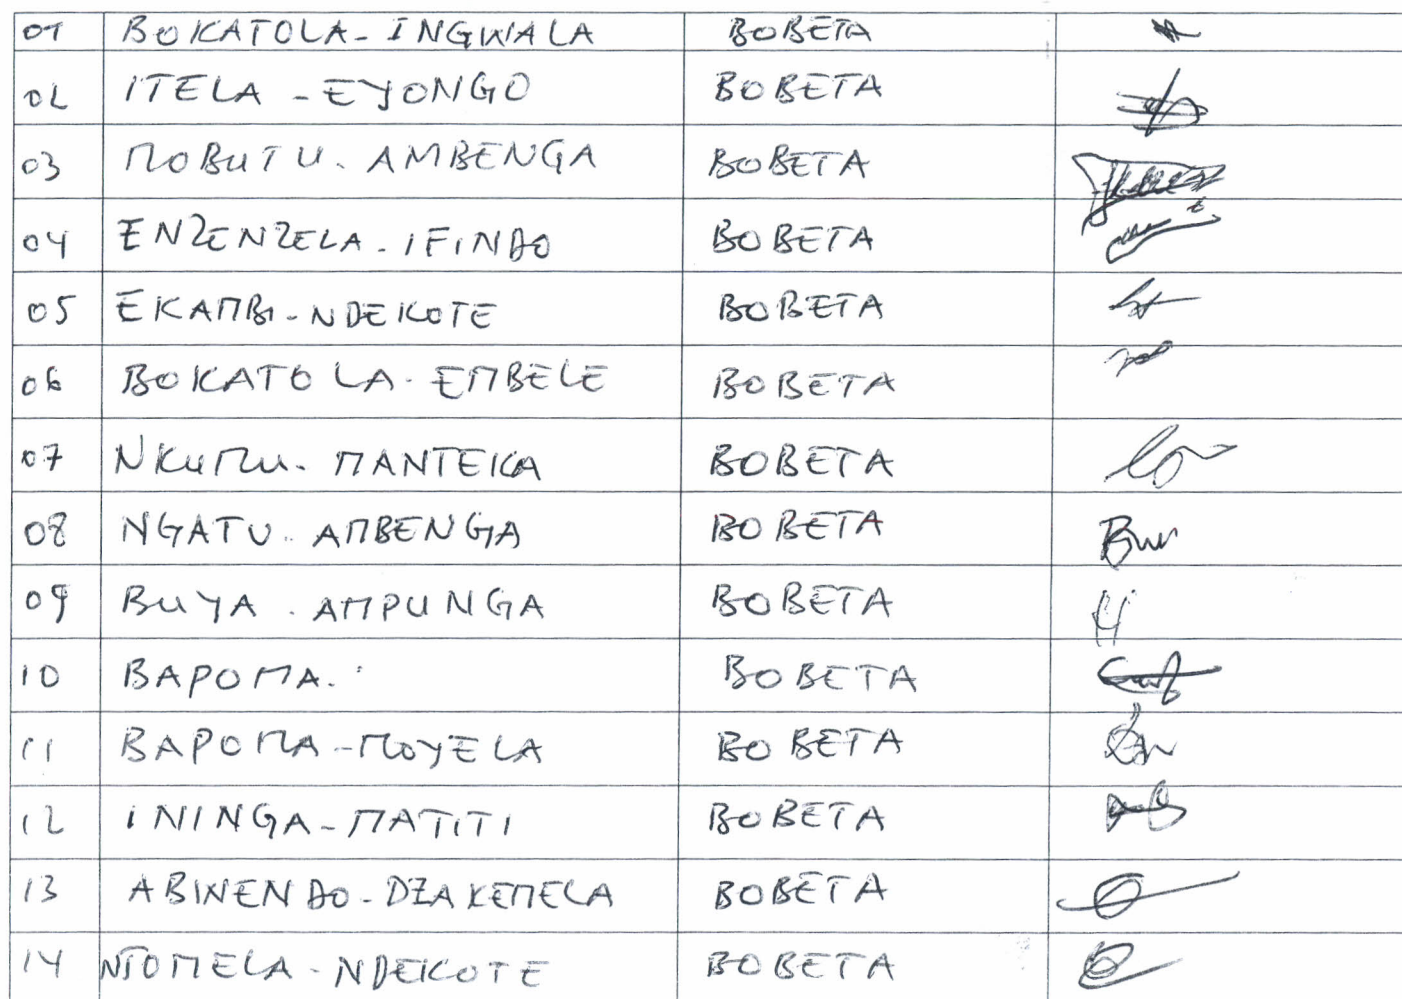 01 BOKATOLA-INGWALA BOBETA
02 ITELA - EYONGO BOBETA
03 MOBUTU. AMBENGA BOBETA
04 ENZENZELA-IFINDO BOBETA
05 EKAMBI-NDEKOTE BOBETA
06 BOKATOLA-EMBELE BOBETA
07 NKUMU-MANTEKA BOBETA
08 NGATU-AMBENGA BOBETA
09 BUYA-AMPUNGA BOBETA
10 BAPOMA. BOBETA
11 BAPOMA-MOYELA BOBETA
12 ININGA-MATITI BOBETA
13 ABWENDO-DZAKEMELA BOBETA
14 NTOMELA-NDEKOTE BOBETA